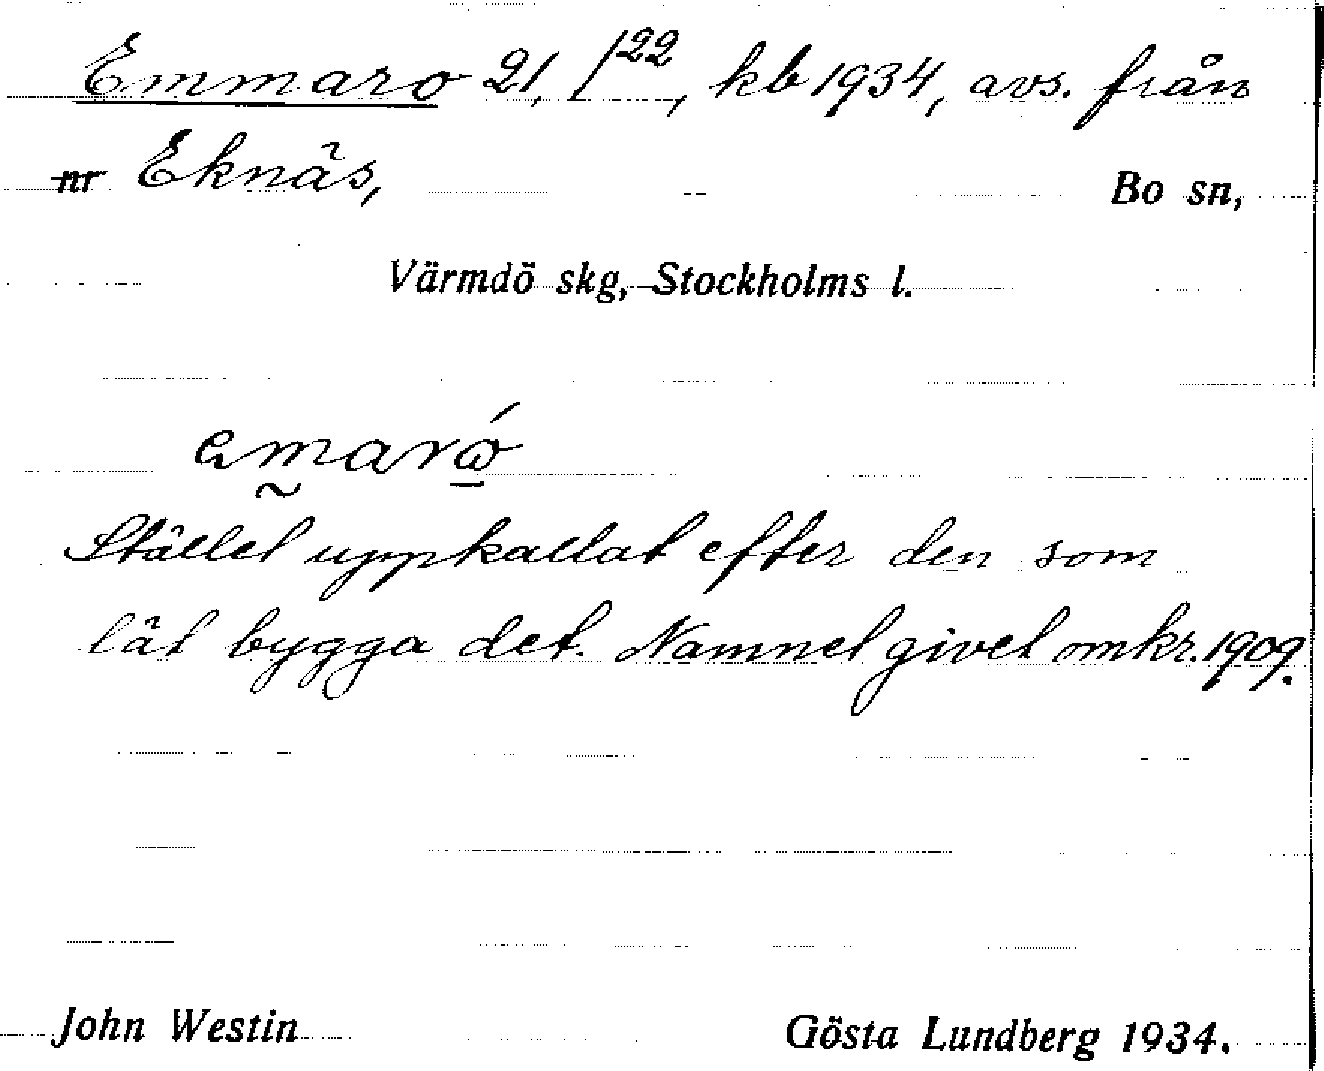 Emmaro 21, /22, kb 1934, avs. från
nr Eknäs, Bo sn,
Värmdö skg, Stockholms l.
emarǫ́
Stället uppkallat efter den som
lät bygga det. Namnet givet omkr. 1909.
John Westin Gösta Lundberg 1934.